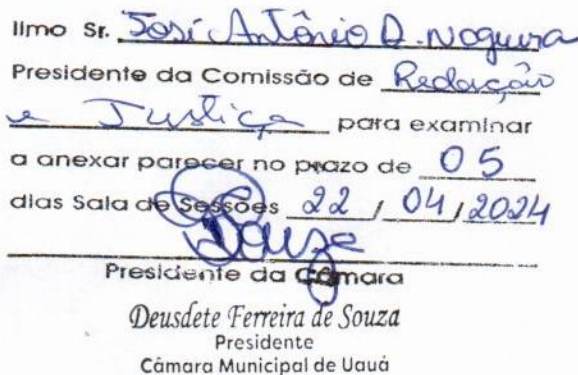 Ilmo Sr. José Antônio D. Nogueira
Presidente da Comissão de Redação
e Justiça para examinar
a anexar parecer no prazo de 05
dias Sala de Sessões 22 / 04 / 2024
Souza
Presidente da Câmara
Deusdete Ferreira de Souza
Presidente
Câmara Municipal de Uauá